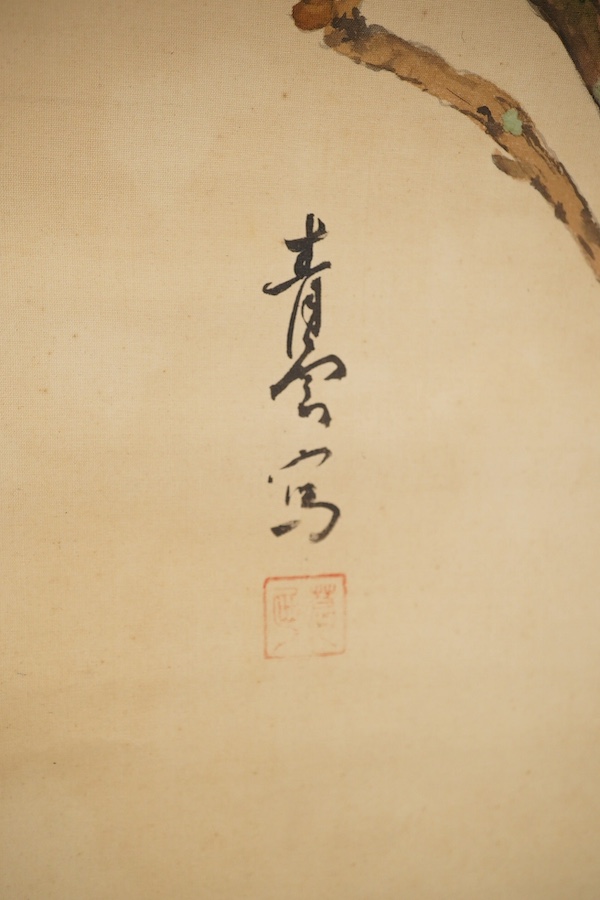 青雲寫